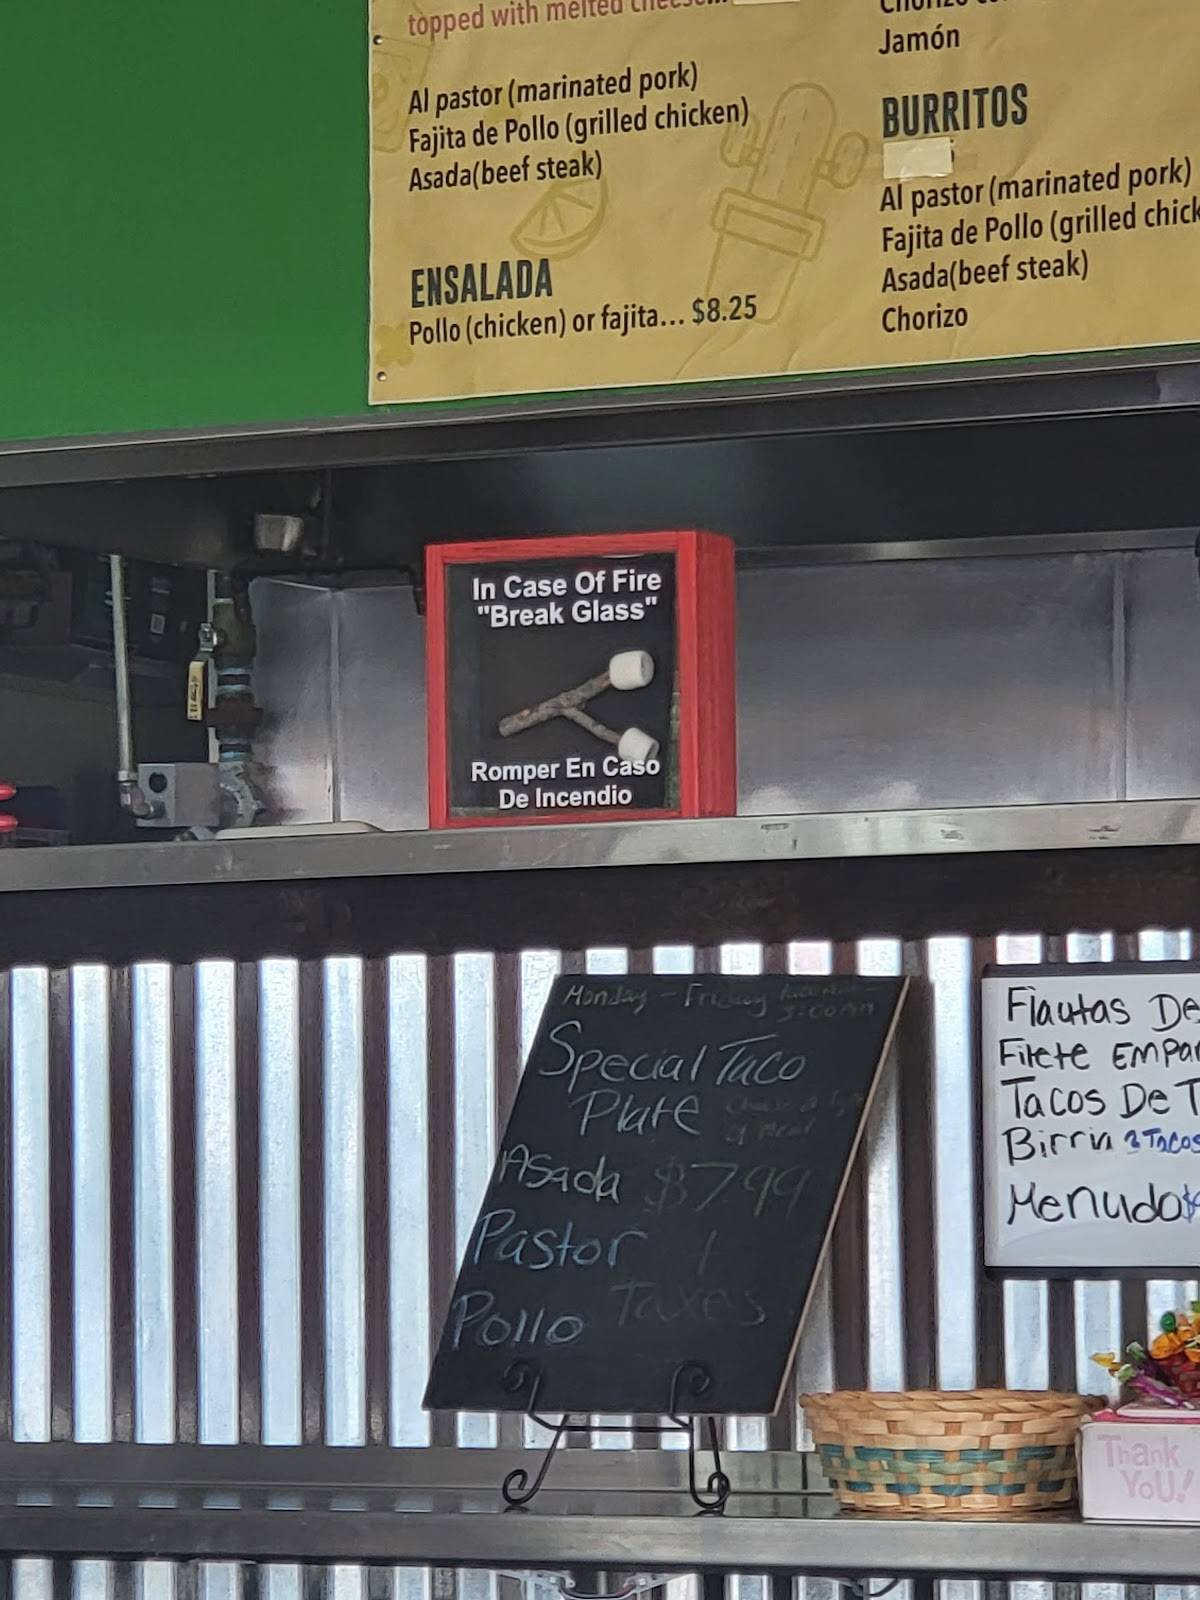 topped with melted cheese...
Al pastor (marinated pork)
Fajita de Pollo (grilled chicken)
Asada(beef steak)
ENSALADA
Pollo (chicken) or fajita... $8.25
Jamón
BURRITOS
Al pastor (marinated pork)
Fajita de Pollo (grilled chick
Asada(beef steak)
Chorizo
In Case Of Fire
"Break Glass"
Romper En Caso
De Incendio
Monday - Friday
Special Taco
Plate
Asada $7.99
Pastor +
Pollo Taxes
Flautas De
Filete Empa
Tacos De T
Birria 3 Tacos
Menudo $
Thank
YoU!